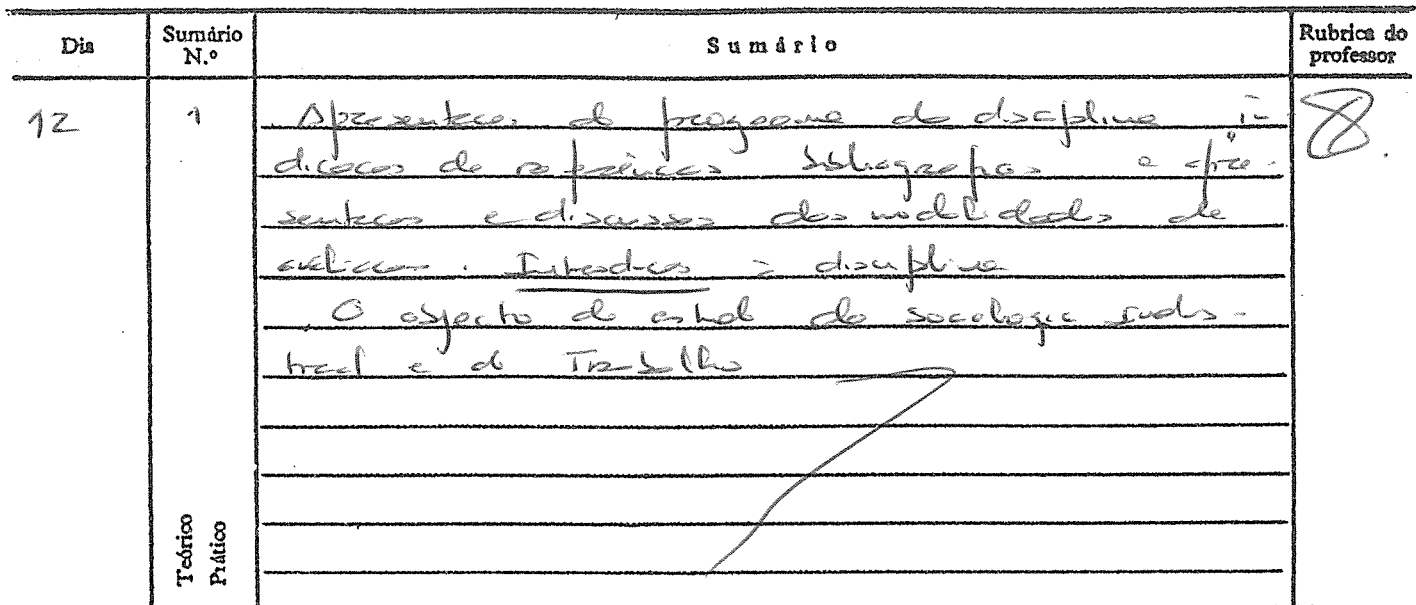 Dia Sumário N.º Sumário Rubrica do professor
12 1 Apresentação do programa da disciplina in-
dicação de referências bibliográficas e apre-
sentação e discussão das modalidades de
avaliação. Introdução à disciplina
O objecto de estudo da sociologia indus-
trial e do Trabalho
Teórico
Prático